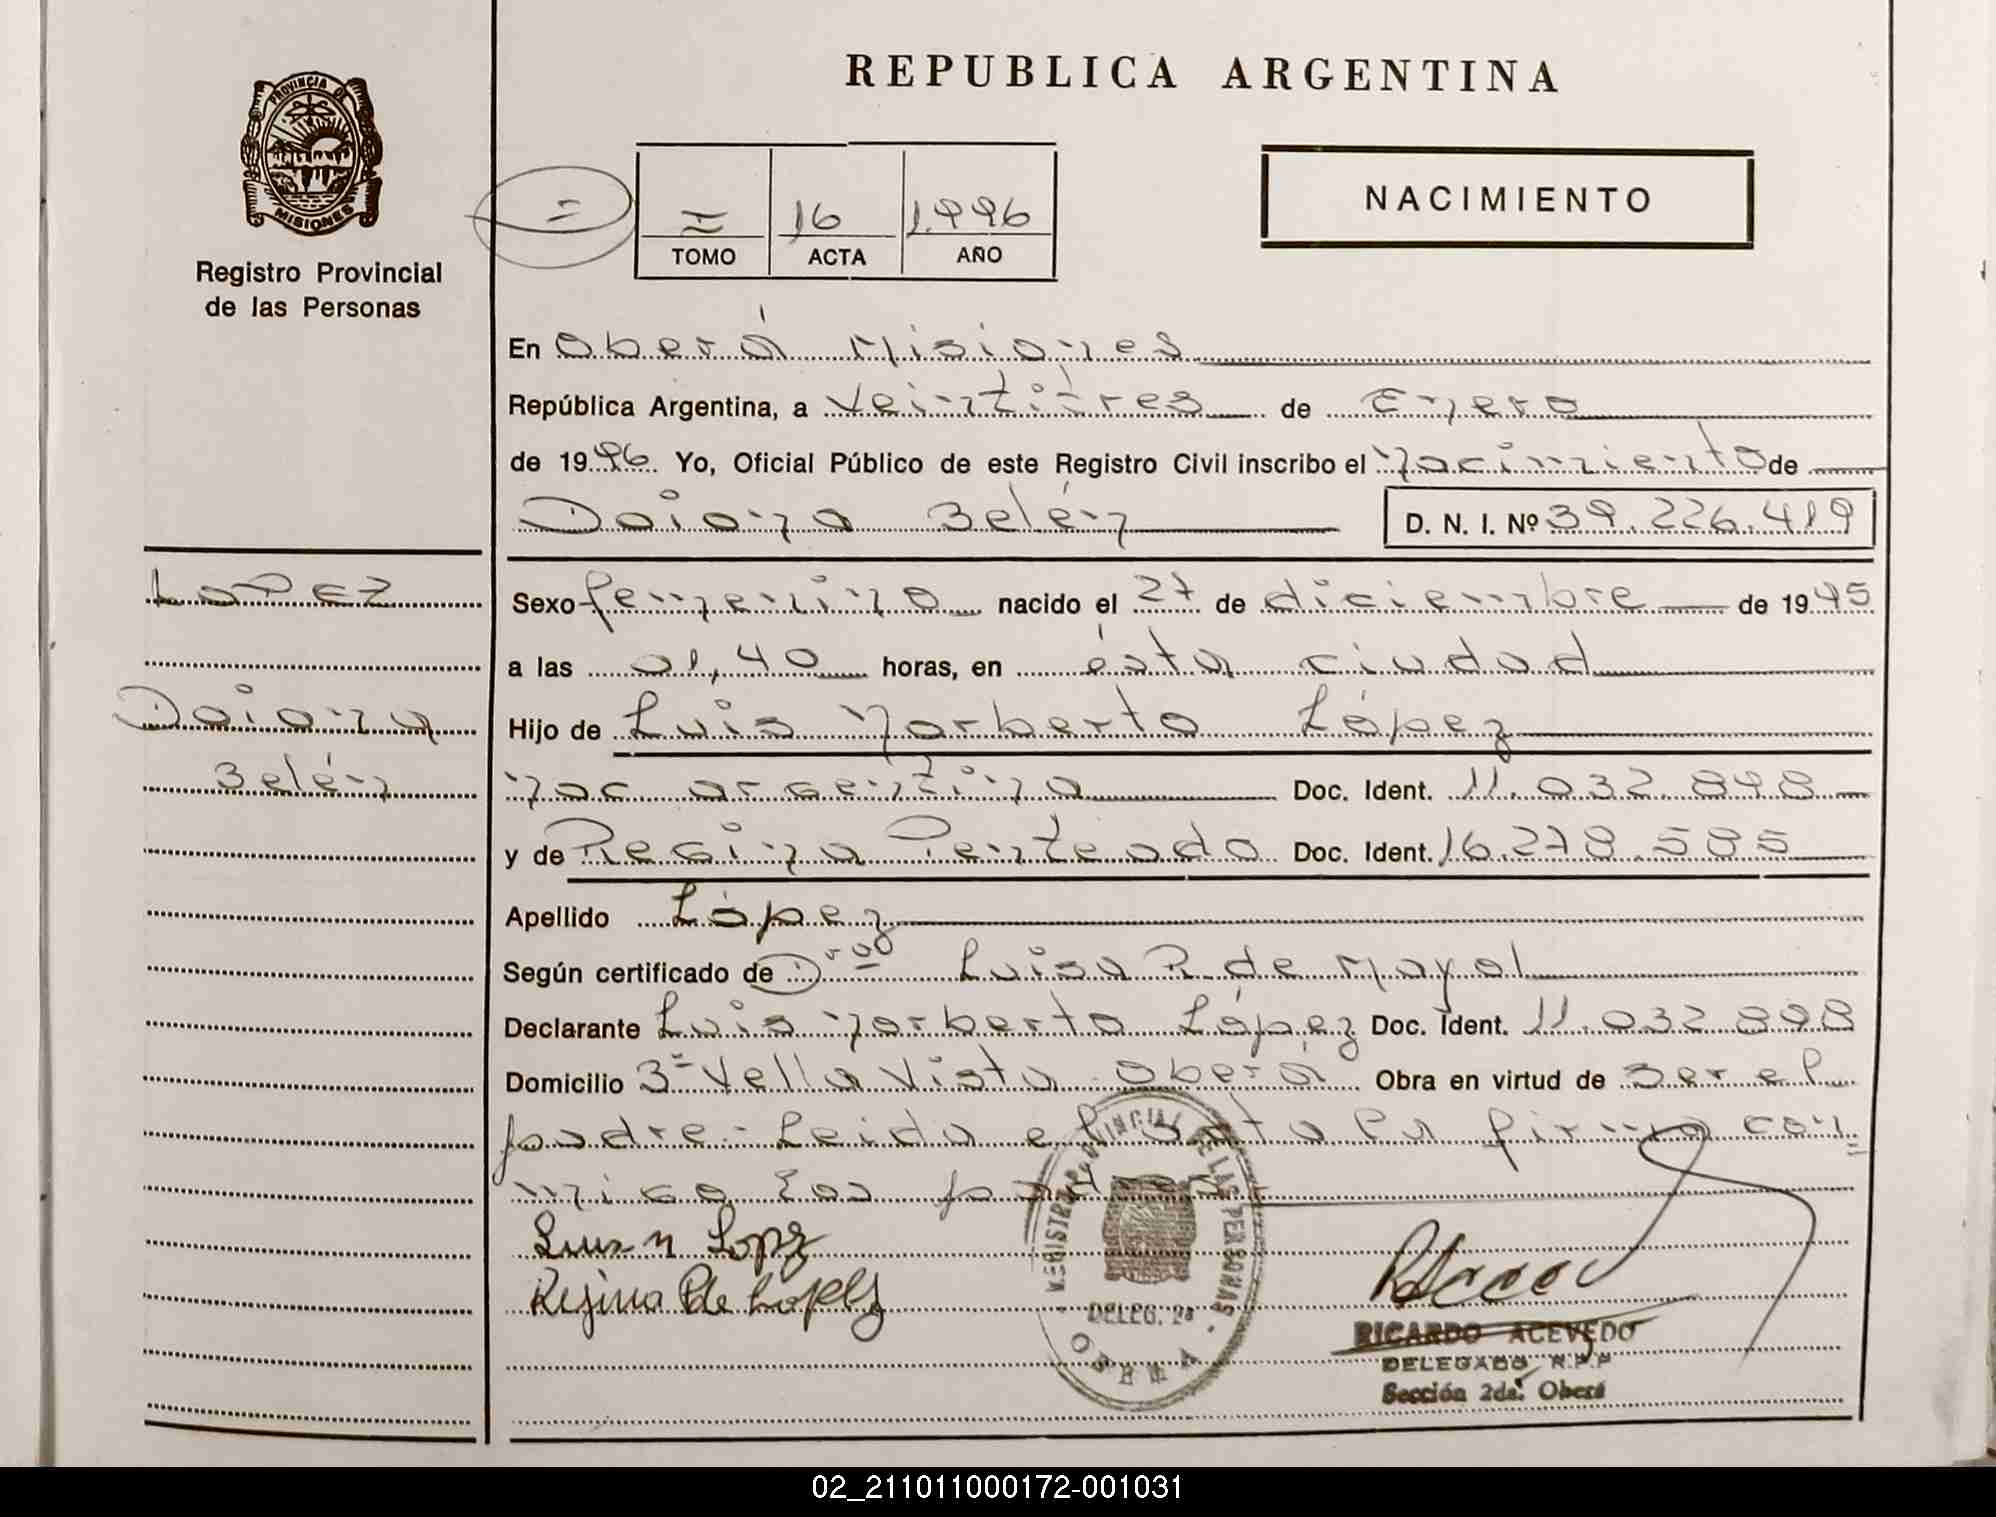 REPUBLICA ARGENTINA
PROVINCIA DE
MISIONES
Registro Provincial
de las Personas
=
=
16
1.996
TOMO
ACTA
AÑO
NACIMIENTO
En Oberá Misiones
República Argentina, a Veintitres de Enero
de 1996 Yo, Oficial Público de este Registro Civil inscribo el nacimiento de
Daiana Belén
D. N. I. Nº 39.226.419
LOPEZ
Daiana
Belén
Sexo femenino nacido el 27 de diciembre de 1995
a las 01,40 horas, en ésta ciudad
Hijo de Luis Norberto López
nac argentina Doc. Ident. 11.032.898
y de Regina Penteado Doc. Ident. 16.278.585
Apellido López
Según certificado de Luisa R. de Mayol
Declarante Luis Norberto López Doc. Ident. 11.032.898
Domicilio Bº Vella Vista Oberá Obra en virtud de ser el
padre - Leida el acta la firma con
migo los padres
Luis N Lopez
Regina P de Lopez
REGISTRO PROVINCIAL DE LAS PERSONAS
DELEG. 2ª
OBERA
RICARDO ACEVEDO
DELEGADO R.P.P
Sección 2da. Oberá
02_211011000172-001031